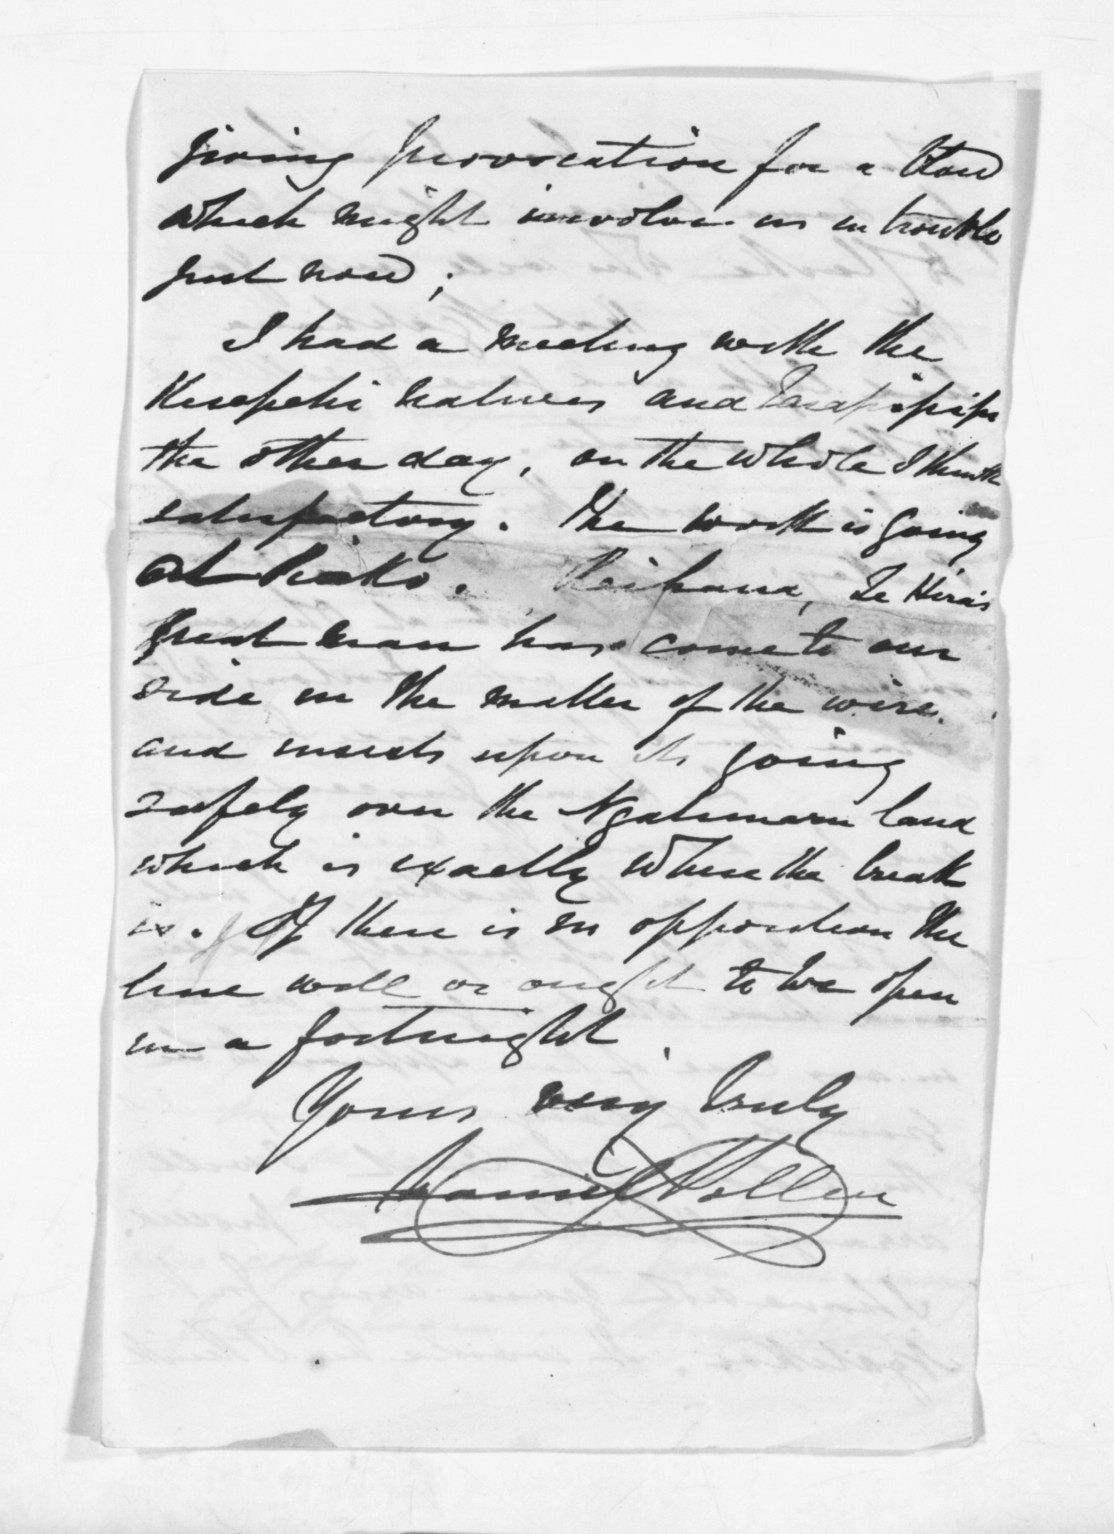 giving provocation for a blow
which might involve us in trouble
just now;
I had a meeting with the
Kerepehi natives and Tarapipipi
the other day, on the whole I think
satisfactory. The work is going
at Piako. Reihana, Te Hira's
great man has come to our
side in the matter of the wire.
and insists upon its going
safely over the Ngatimaru land
which is exactly where the break
is. If there is no opposition the
line will or ought to be open
in a fortnight.
Yours very truly
Daniel Pollen